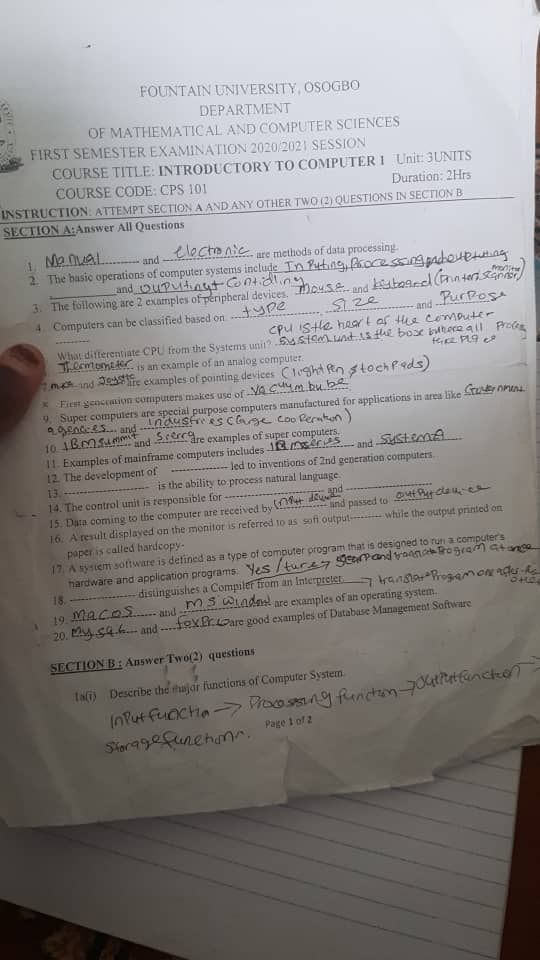 FOUNTAIN UNIVERSITY, OSOGBO
DEPARTMENT
OF MATHEMATICAL AND COMPUTER SCIENCES
FIRST SEMESTER EXAMINATION 2020/2021 SESSION
COURSE TITLE: INTRODUCTORY TO COMPUTER I Unit: 3UNITS
COURSE CODE: CPS 101 Duration: 2Hrs
INSTRUCTION: ATTEMPT SECTION A AND ANY OTHER TWO (2) QUESTIONS IN SECTION B
SECTION A: Answer All Questions
1. Manual and electronic are methods of data processing.
2. The basic operations of computer systems include Inputing, Processing and outputing
and ouputing + Contrlling
3. The following are 2 examples of peripheral devices. Mouse and keyboard (Printer, scanner, monitor)
4. Computers can be classified based on type size and Purpose
CPU is the heart of the computer
What differentiate CPU from the Systems unit? system unit is the box where all Process take place
Thermometer is an example of an analog computer.
and are examples of pointing devices (light Pen touch Pads)
8. First generation computers makes use of vacuum bube
9. Super computers are special purpose computers manufactured for applications in area like Government
agencies and Industries (large cooperation)
10. IBM summit and Sierra are examples of super computers.
11. Examples of mainframe computers includes IBM series and System
12. The development of led to inventions of 2nd generation computers.
13. is the ability to process natural language.
14. The control unit is responsible for and
15. Data coming to the computer are received by Input device and passed to output device
16. A result displayed on the monitor is referred to as soft output while the output printed on
paper is called hardcopy-
17. A system software is defined as a type of computer program that is designed to run a computer's
hardware and application programs. Yes/ture and translate Program at once
18. distinguishes a Compiler from an Interpreter. translate Program one after
19. Macos and MS Window are examples of an operating system.
20. and foxPro are good examples of Database Management Software
SECTION B : Answer Two(2) questions
1a(i) Describe the major functions of Computer System.
Input Function → Processing function → Output function →
Storage function.
Page 1 of 2